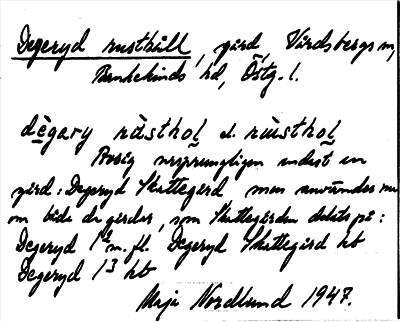 Degeryd rusthåll, gård, Vårdsbergs sn,
Bankekinds hd, Östg. l.
dègary råsthol l. rùusthol
Avsåg ursprungligen endast en
gård: Degeryd Skattegård men användes nu
om båda de gårdar, som Skattegården delats på:
Degeryd 1² m. fl. Degeryd Skattegård hb
Degeryd 1³ hb
Maja Nordlund 1947.